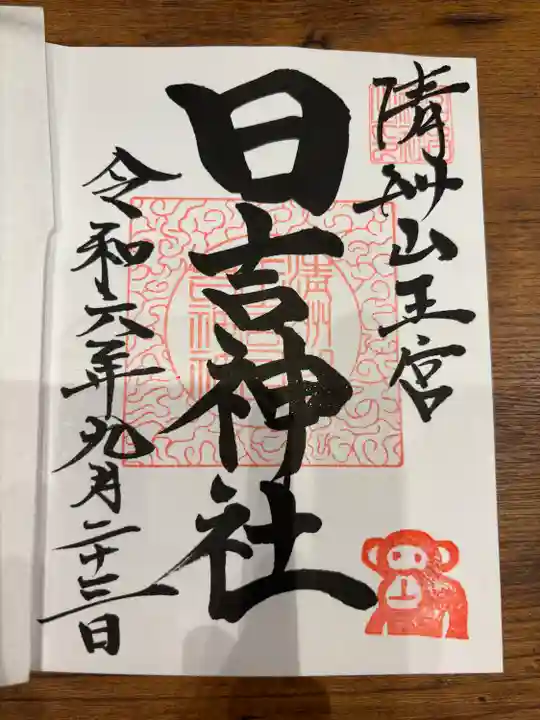 清州山王宮
日吉神社
令和六年九月二十三日